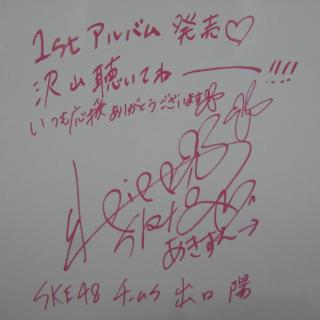 1st アルバム 発売♡
沢山聴いてねー!!!!
いつも応援ありがとうございます
SKE48
あきすん→
SKE48 チームS 出口 陽